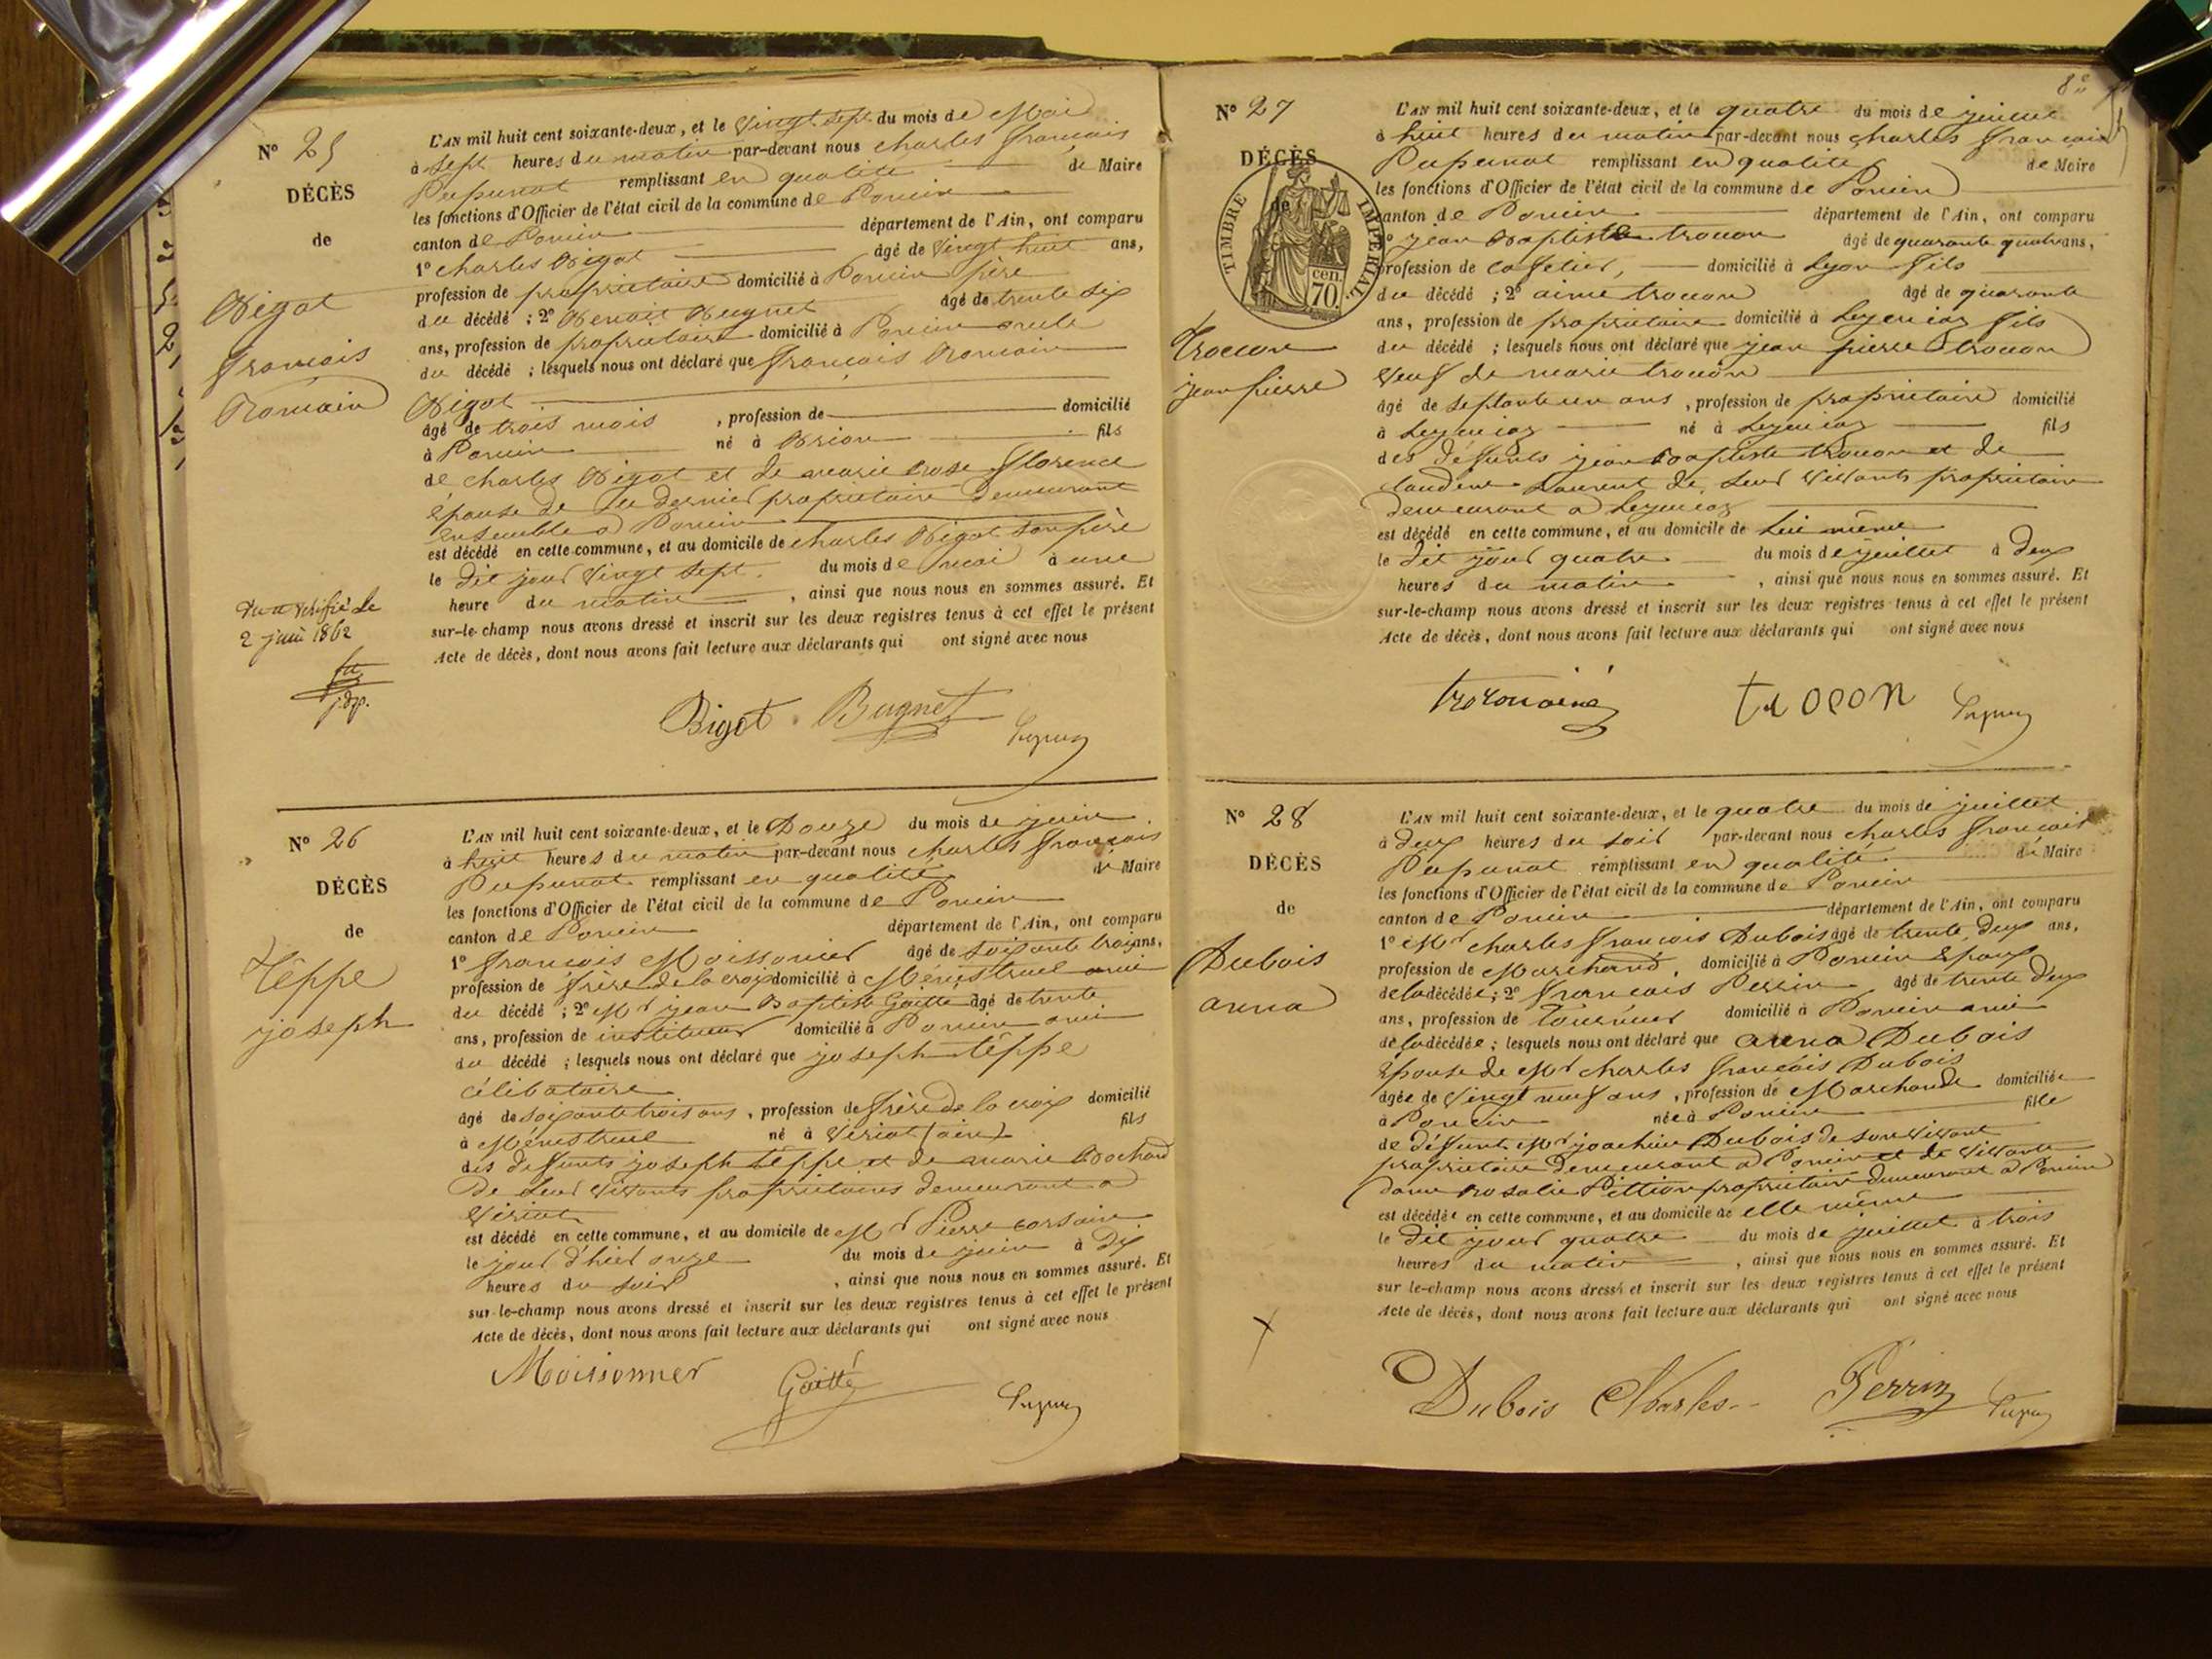 N° 25
DÉCÈS
de
Bigot
françois
Romain
Vu et vérifié le
2 juin 1862
L'AN mil huit cent soixante-deux, et le vingt sept du mois de Mai
à sept heures du matin par-devant nous charles françois
Pupunat remplissant en qualité de Maire
les fonctions d'Officier de l'état civil de la commune de Poncin
canton de Poncin département de l'Ain, ont comparu
1° charles Bigot âgé de vingt huit ans,
profession de propriétaire domicilié à Poncin père
du décédé ; 2° Benoit Bugnet âgé de trente six
ans, profession de propriétaire domicilié à Poncin oncle
du décédé ; lesquels nous ont déclaré que françois Romain
Bigot
âgé de trois mois , profession de domicilié
à Poncin né à Brion fils
de charles Bigot et de marie rose florence
épouse de ce dernier propriétaire demeurant
ensemble a Poncin
est décédé en cette commune, et au domicile de charles Bigot son père
le dit jour vingt sept. du mois de mai à une
heure du matin , ainsi que nous nous en sommes assuré. Et
sur-le-champ nous avons dressé et inscrit sur les deux registres tenus à cet effet le présent
Acte de décès, dont nous avons fait lecture aux déclarants qui ont signé avec nous
Bigot Bugnet
N° 26
DÉCÈS
de
Téppe
joseph
L'AN mil huit cent soixante-deux, et le Douze du mois de juin
à huit heures du matin par-devant nous charles françois
Pupunat remplissant en qualité de Maire
les fonctions d'Officier de l'état civil de la commune de Poncin
canton de Poncin département de l'Ain, ont comparu
1° françois Moissonier âgé de soixante trois ans,
profession de frère de la croix domicilié à Ménestruel ami
du décédé ; 2° Mr jean Baptiste Gaitte âgé de trente
ans, profession de instituteur domicilié à Poncin ami
du décédé ; lesquels nous ont déclaré que joseph téppe
célibataire
âgé de soixante trois ans , profession de frère de la croix domicilié
à Ménestruel né à Viriat (ain) fils
des defunts joseph téppe et de marie Bochard
De leur vivants propriétaires demeurant a
Viriat
est décédé en cette commune, et au domicile de Mr Pierre corsain
le jour d'hier onze du mois de juin à Dix
heures du soir , ainsi que nous nous en sommes assuré. Et
sur-le-champ nous avons dressé et inscrit sur les deux registres tenus à cet effet le présent
Acte de décès, dont nous avons fait lecture aux déclarants qui ont signé avec nous
Moissonnier Gaitté
N° 27
DÉCÈS
de
TIMBRE IMPERIAL
70 cen.
Trocon
jean pierre
L'AN mil huit cent soixante-deux, et le quatre du mois de
à huit heures du matin par-devant nous charles françois
Pupunat remplissant en qualité de Maire
les fonctions d'Officier de l'état civil de la commune de Poncin
canton de Poncin département de l'Ain, ont comparu
1° jean Baptiste trocon âgé de quarante quatre ans,
profession de cafetier, domicilié à Lyon fils
du décédé ; 2° aimé trocon âgé de quarante
ans, profession de propriétaire domicilié à Leymiaz fils
du décédé ; lesquels nous ont déclaré que jean pierre trocon
veuf de marie trocon
âgé de septante un ans , profession de propriétaire domicilié
à Leymiaz né à Leymiaz fils
des défunts jean Baptiste trocon et de
claudine Laurent de leur vivants propriétaire
demeurant a Leymiaz
est décédé en cette commune, et au domicile de Lui même
le dit jour quatre du mois de juillet à deux
heures du matin , ainsi que nous nous en sommes assuré. Et
sur-le-champ nous avons dressé et inscrit sur les deux registres tenus à cet effet le présent
Acte de décès, dont nous avons fait lecture aux déclarants qui ont signé avec nous
trocon
N° 28
DÉCÈS
de
Dubois
anna
L'AN mil huit cent soixante-deux, et le quatre du mois de juillet
à deux heures du soir par-devant nous charles françois
Pupunat remplissant en qualité de Maire
les fonctions d'Officier de l'état civil de la commune de Poncin
canton de Poncin département de l'Ain, ont comparu
1° Mr charles françois Dubois âgé de trente deux ans,
profession de Marchand, domicilié à Poncin Epoux
de la décédée ; 2° françois Perrin âgé de trente deux
ans, profession de domicilié à Poncin ami
de la décédée ; lesquels nous ont déclaré que anna Dubois
Epouse de Mr charles françois Dubois
âgée de vingt neuf ans , profession de Marchande domiciliée
à Poncin née à Poncin fille
de défunt Mr joachim Dubois de son vivant
propriétaire demeurant a Poncin et de vivante
dame rosalie Pittion propriétaire demeurant a Poncin
est décédée en cette commune, et au domicile de elle même
le dit jour quatre du mois de juillet à trois
heures du matin , ainsi que nous nous en sommes assuré. Et
sur le-champ nous avons dressé et inscrit sur les deux registres tenus à cet effet le présent
Acte de décès, dont nous avons fait lecture aux déclarants qui ont signé avec nous
Dubois Charles Perrin